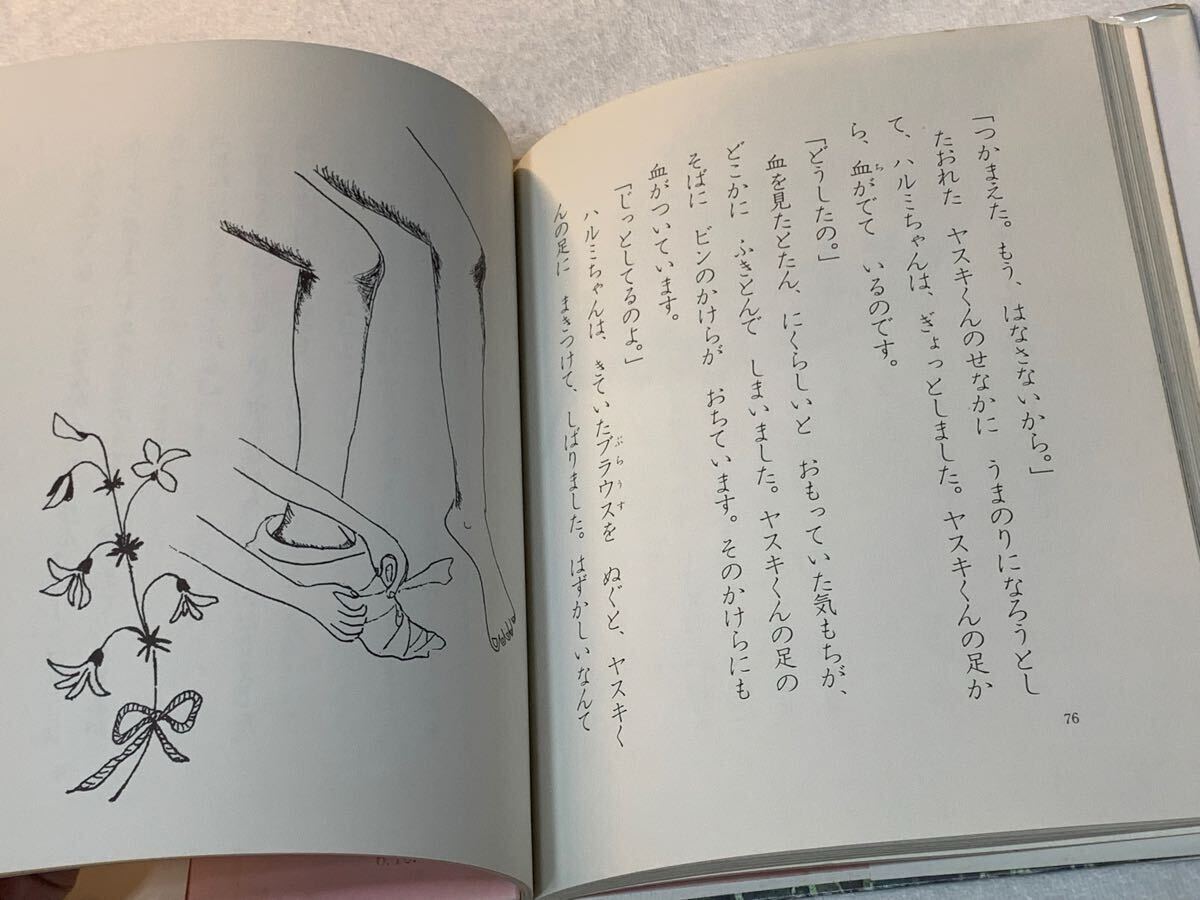 「つかまえた。もう、はなさないから。」
たおれた　ヤスキくんのせなかに　うまのりになろうとし
て、ハルミちゃんは、ぎょっとしました。ヤスキくんの足か
ら、血がでて　いるのです。
ち
「どうしたの。」
血を見たとたん、にくらしいと　おもっていた気もちが、
どこかに　ふきとんで　しまいました。ヤスキくんの足の
そばに　ビンのかけらが　おちています。そのかけらにも
血がついています。
「じっとしてるのよ。」
ハルミちゃんは、きていたブラウスを　ぬぐと、ヤスキく
ぶらうす
んの足に　まきつけて、しばりました。はずかしいなんて
76